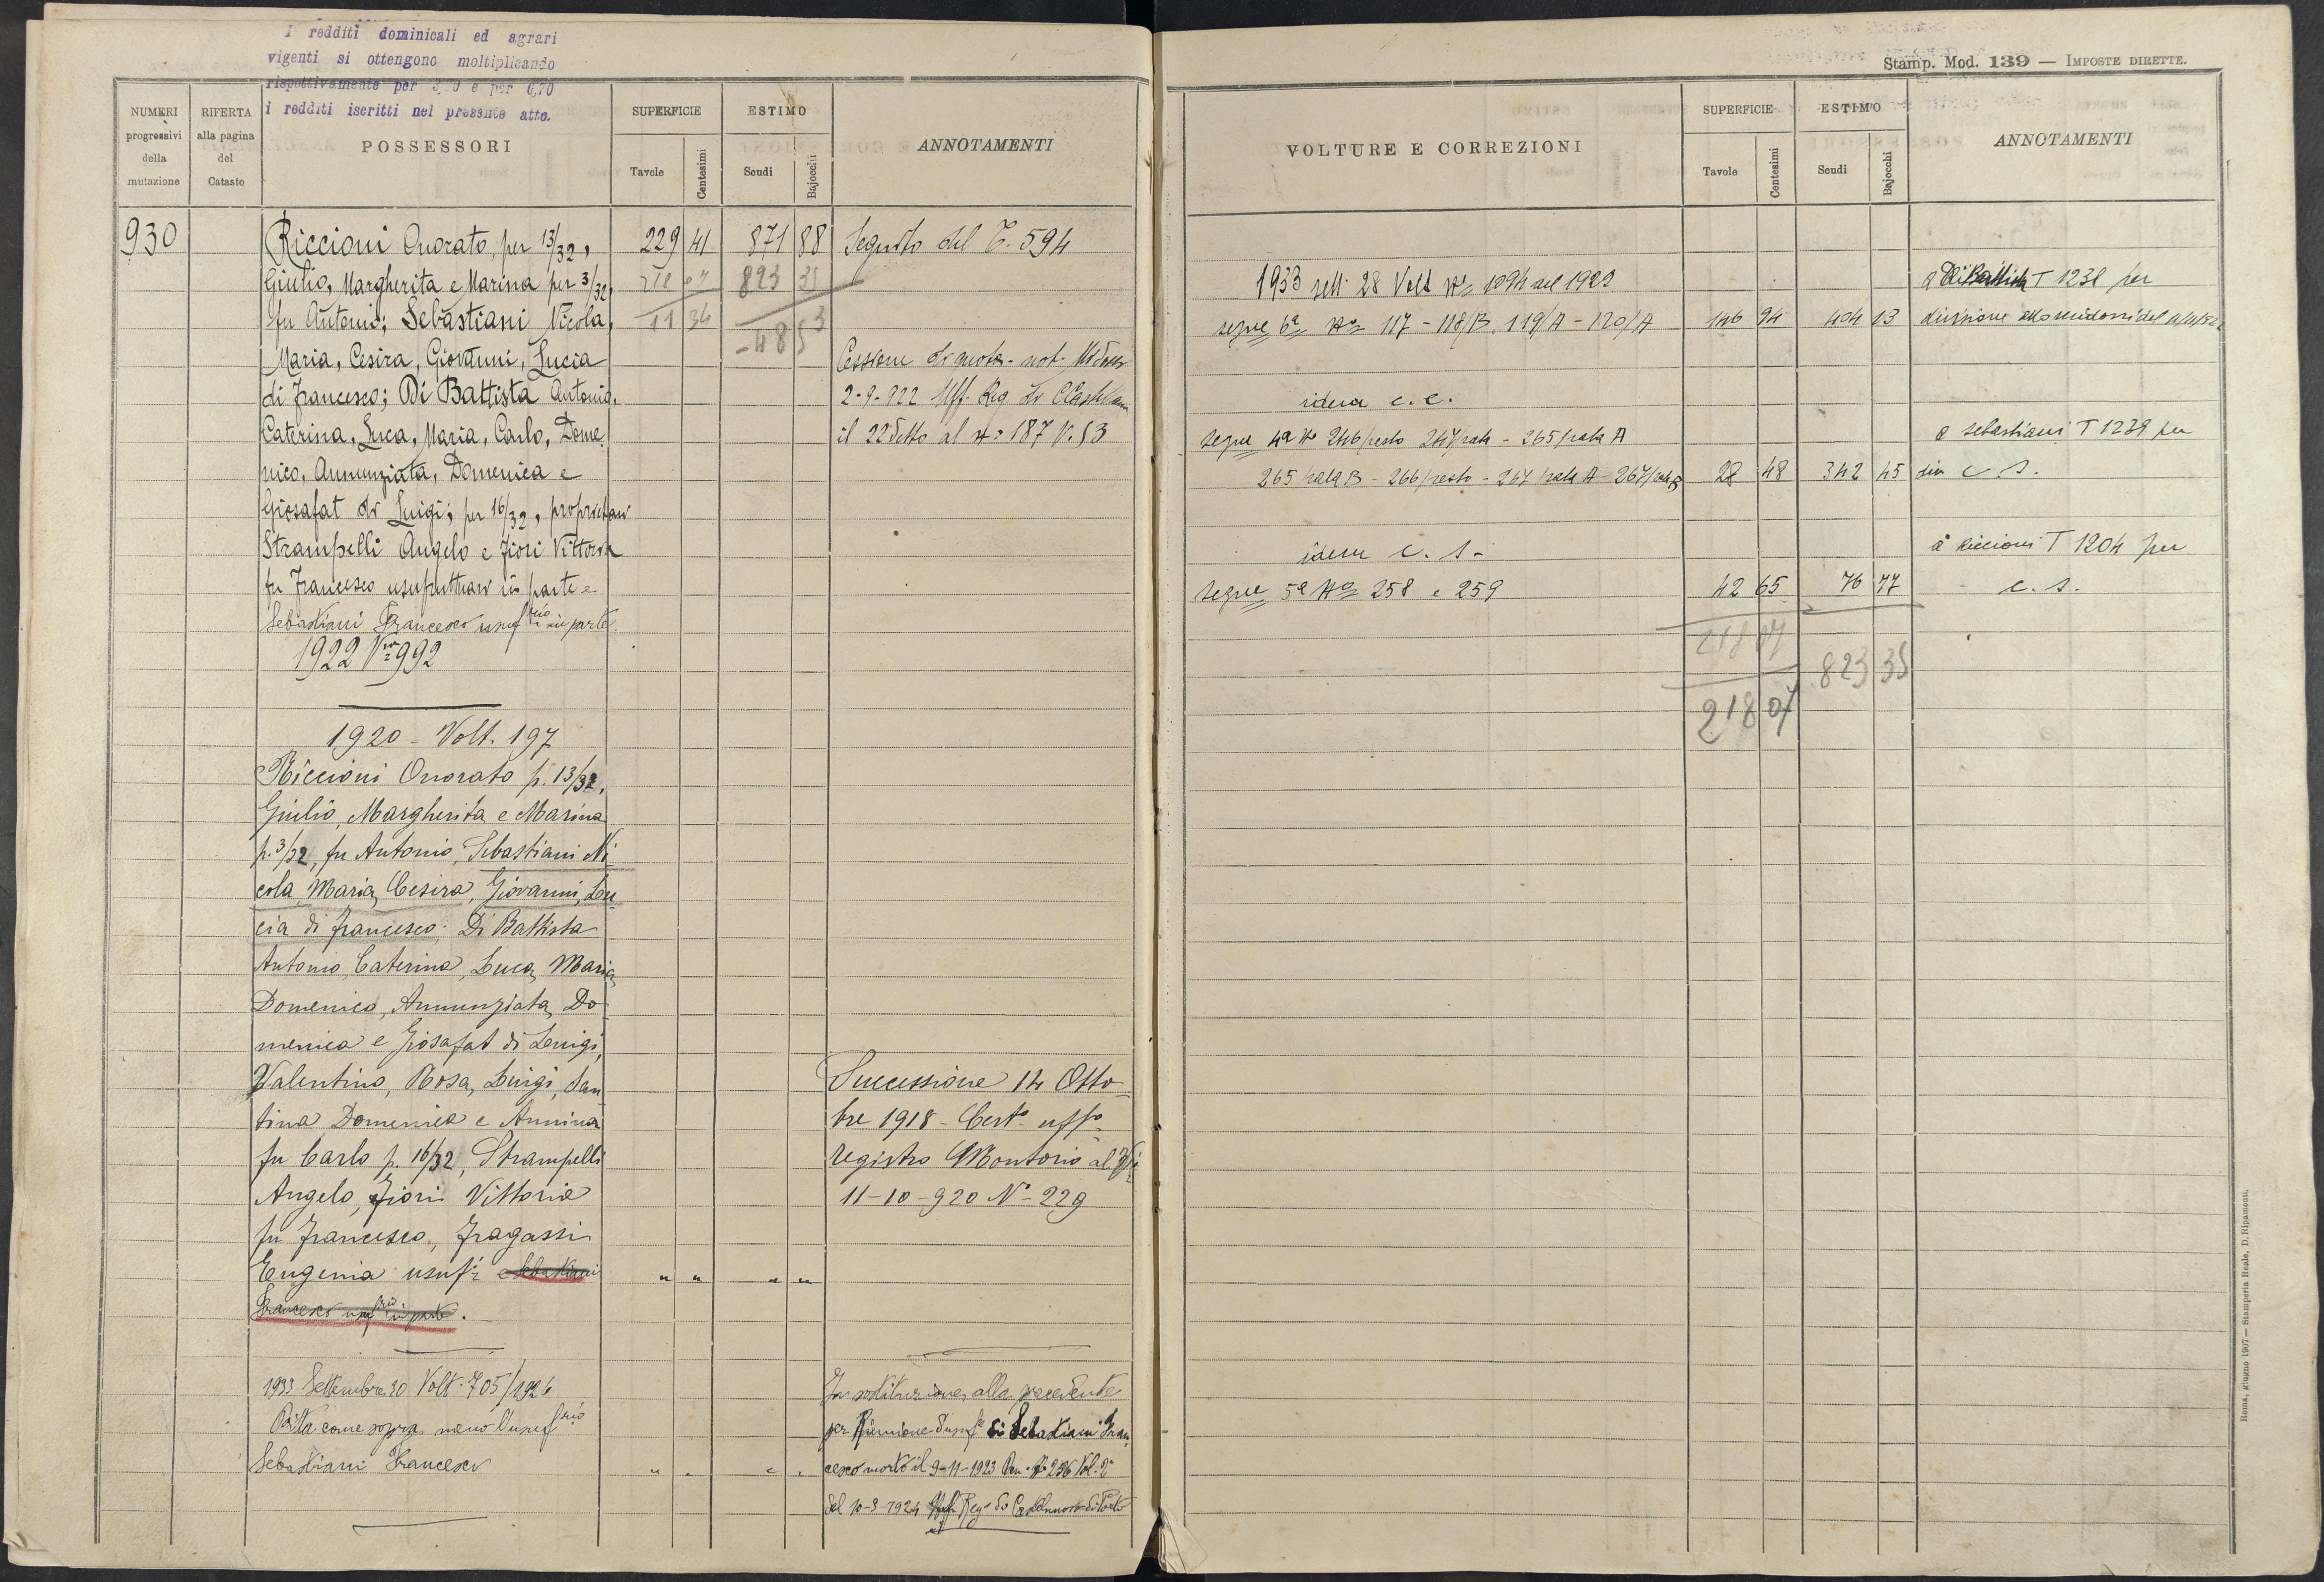 I redditi dominicali ed agrari
vigenti si ottengono moltiplicando
rispettivamente per 3,70 e per 6,70
i redditi iscritti nel presente atto.
NUMERI progressivi della mutazione
RIFERTA alla pagina del Catasto
POSSESSORI
SUPERFICIE
Tavole
Centesimi
ESTIMO
Scudi
Bajocchi
ANNOTAMENTI
930
Riccioni Onorato, per 13/32, 229 41 871 88 Seguito del T. 594
Giulio, Margherita e Marina per 3/32, 218 07 823 35
fu Antonio; Sebastiani Nicola, 11 34 48 53
Maria, Cesira, Giovanni, Lucia Cessione di quota - not.
di Francesco; Di Battista Antonio, 2-9-922 Uff. Reg. di
Caterina, Luca, Maria, Carlo, Dome- il 22 detto al No 187 V. 53
nico, Annunziata, Domenica e
Giosafat di Luigi; per 16/32, proprietari
Strampelli Angelo e Fiori Vittoria
fu Francesco usufruttuari in parte e
Sebastiani Francesco usufrio in parte.
1922 Vra 992
1920 - Volt. 197
Riccioni Onorato p. 13/32,
Giulio, Margherita e Marina
p. 3/32, fu Antonio, Sebastiani Ni-
cola, Maria, Cesira, Giovanni, Lu-
cia di Francesco; Di Battista
Antonio, Caterina, Luca, Maria,
Domenico, Annunziata, Do-
menica e Giosafat di Luigi,
Valentino, Rosa, Luigi, San- Successione 14 Otto-
tina Domenica e Annina bre 1918 - Certo uffo
fu Carlo p. 16/32, Strampelli registro Montorio al
Angelo, Fiori Vittoria 11-10-920 No 229
fu Francesco, Fragassi
Eugenia usufri e Sebastiani " " " "
Francesco usufrio in parte.
1933 Settembre 20 Volt. 705/1926 In sostituzione alla precedente
Ditta come sopra meno l'usufrio per Riunione d'usuf di Sebastiani Fran-
Sebastiani Francesco " " " " cesco morto il 9-11-1923 Den. No 236 Vol. 2
del 10-3-1924 Uff. Rego di Castelnuovo di Porto
Stamp. Mod. 139 — IMPOSTE DIRETTE.
VOLTURE E CORREZIONI
SUPERFICIE
Tavole
Centesimi
ESTIMO
Scudi
Bajocchi
ANNOTAMENTI
1933 sett. 28 Volt No 1094 del 1922 a Di Battista T 1238 per
segue 6a No 117 - 118/B. 119/A - 120/A 146 94 404 13 divisione
idem c.s. a Sebastiani T 1239 per
segue 4a No 246/resto 247/rata - 265/rata A
265/rata B - 266/resto - 267/rata A - 267/rata B 28 48 342 45 div c.s.
idem c.s. a Riccioni T 1204 per
segue 5a No 258 e 259 42 65 76 77 c.s.
218 07 823 35
218 07
Roma, giugno 1907 — Stamperia Reale, D. Ripamonti.